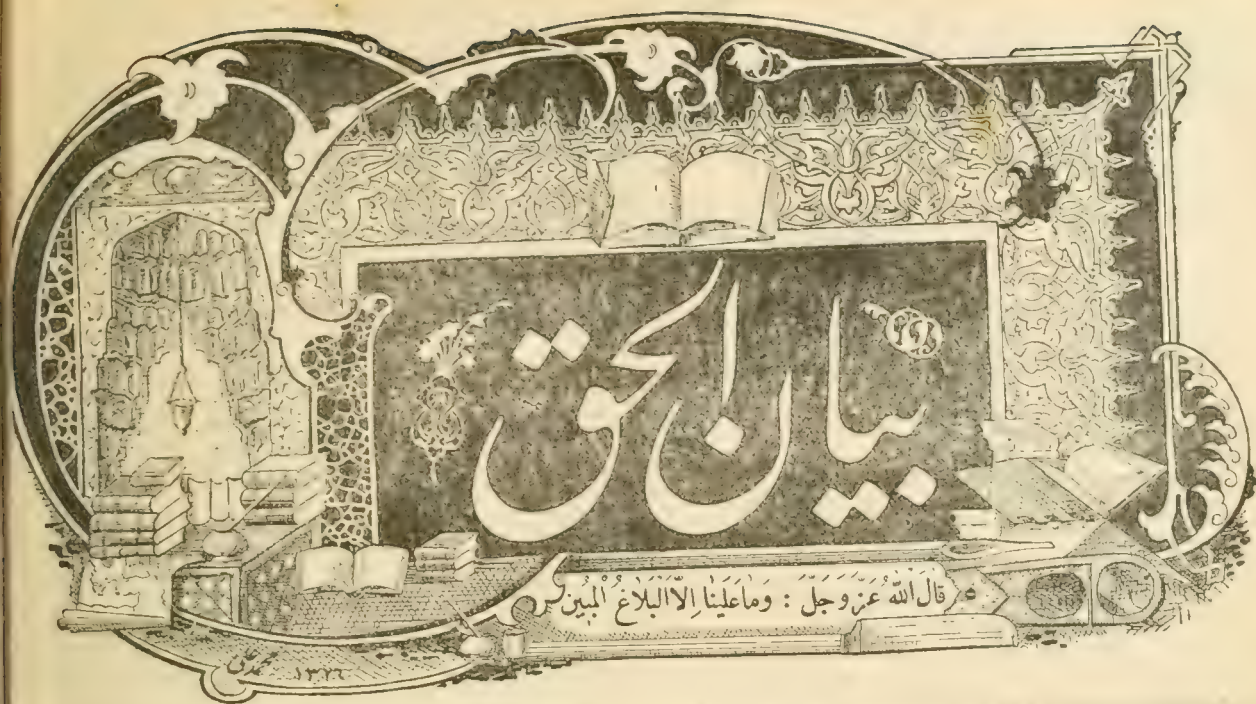 بيان الحق
قال الله عز وجل : وَمَا عَلَيْنَا اِلَّا الْبَلَاغُ الْمُبِينُ
محمد علی ١٣٢٦